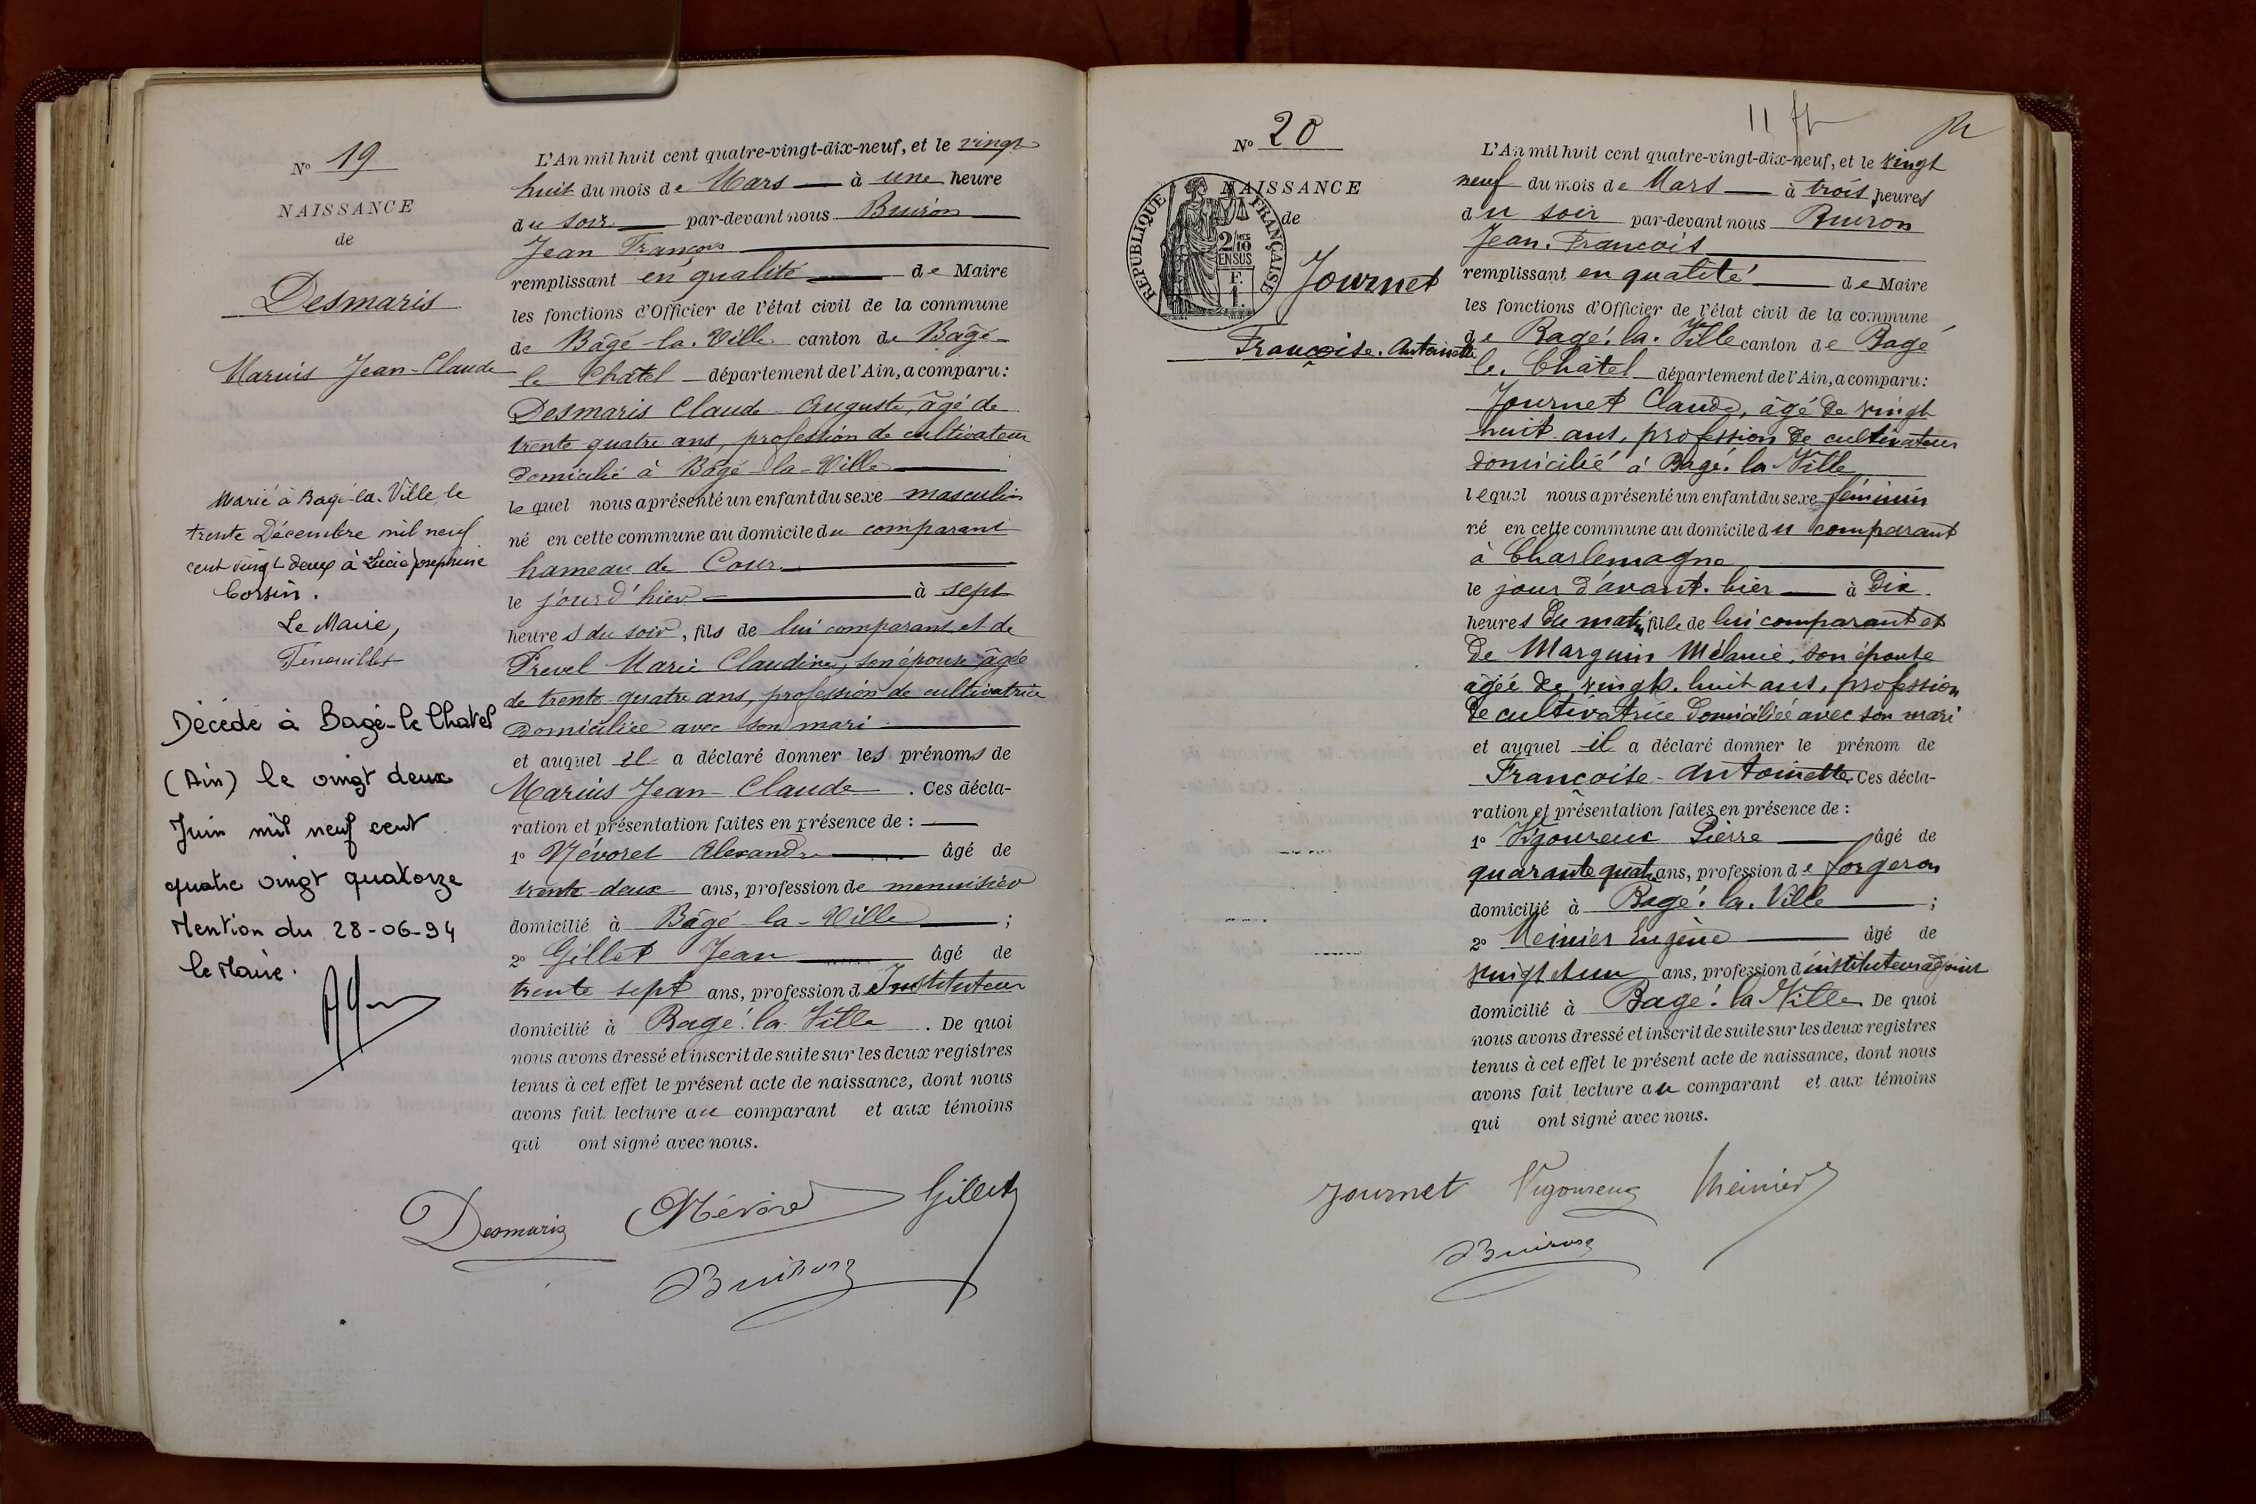 Nº 19
NAISSANCE
de
Desmaris
Marius Jean-Claude
Marié à Bagé-la-Ville le
trente Décembre mil neuf
cent vingt deux à Lucie Joséphine
Corsin.
Le Maire,
Décédé à Bagé-le Chatel
(Ain) le vingt deux
Juin mil neuf cent
quatre vingt quatorze
Mention du 28-06-94
le Maire.
L'An mil huit cent quatre-vingt-dix-neuf, et le vingt
huit du mois de Mars à une heure
du soir par-devant nous Buiron
Jean François
remplissant en qualité de Maire
les fonctions d'Officier de l'état civil de la commune
de Bâgé-la-Ville canton de Bâgé-
le Châtel département de l'Ain, a comparu :
Desmaris Claude Auguste, âgé de
trente quatre ans, profession de cultivateur
domicilié à Bâgé-la-Ville
lequel nous a présenté un enfant du sexe masculin
né en cette commune au domicile du comparant
hameau de Cour
le jour d'hier à sept
heures du soir, fils de lui comparant et de
Prevel Marie Claudine, son épouse âgée
de trente quatre ans, profession de cultivatrice
domiciliée avec son mari
et auquel il a déclaré donner les prénoms de
Marius Jean-Claude. Ces décla-
ration et présentation faites en présence de :
1º Névoret Alexandre âgé de
trente-deux ans, profession de menuisier
domicilié à Bâgé-la-Ville ;
2º Gillet Jean âgé de
trente sept ans, profession d'Instituteur
domicilié à Bagé-la-Ville. De quoi
nous avons dressé et inscrit de suite sur les deux registres
tenus à cet effet le présent acte de naissance, dont nous
avons fait lecture au comparant et aux témoins
qui ont signé avec nous.
Desmaris Névoret Gillet
Buiron
11
Nº 20
NAISSANCE
de
RÉPUBLIQUE FRANÇAISE
2/10
EN SUS
F.
1.
Journet
Françoise-Antoinette
L'An mil huit cent quatre-vingt-dix-neuf, et le vingt
neuf du mois de Mars à trois heures
du soir par-devant nous Buiron
Jean-François
remplissant en qualité de Maire
les fonctions d'Officier de l'état civil de la commune
de Bagé-la-Ville canton de Bagé
le-Châtel département de l'Ain, a comparu :
Journet Claude, âgé de vingt
huit ans, profession de cultivateur
domicilié à Bagé-la Ville
lequel nous a présenté un enfant du sexe féminin
né en cette commune au domicile du comparant
à Charlemagne
le jour d'avant-hier à dix
heures du matin, fille de lui comparant et
de Marguin Mélanie, son épouse
âgée de vingt-huit ans, profession
de cultivatrice domiciliée avec son mari
et auquel il a déclaré donner le prénom de
Françoise-Antoinette. Ces décla-
ration et présentation faites en présence de :
1º Vigoureux Pierre âgé de
quarante quatre ans, profession de forgeron
domicilié à Bagé-la-Ville ;
2º Meinier Eugène âgé de
vingt et un ans, profession d'instituteur adjoint
domicilié à Bagé-la Ville De quoi
nous avons dressé et inscrit de suite sur les deux registres
tenus à cet effet le présent acte de naissance, dont nous
avons fait lecture au comparant et aux témoins
qui ont signé avec nous.
Journet Vigoureux Meinier
Buiron